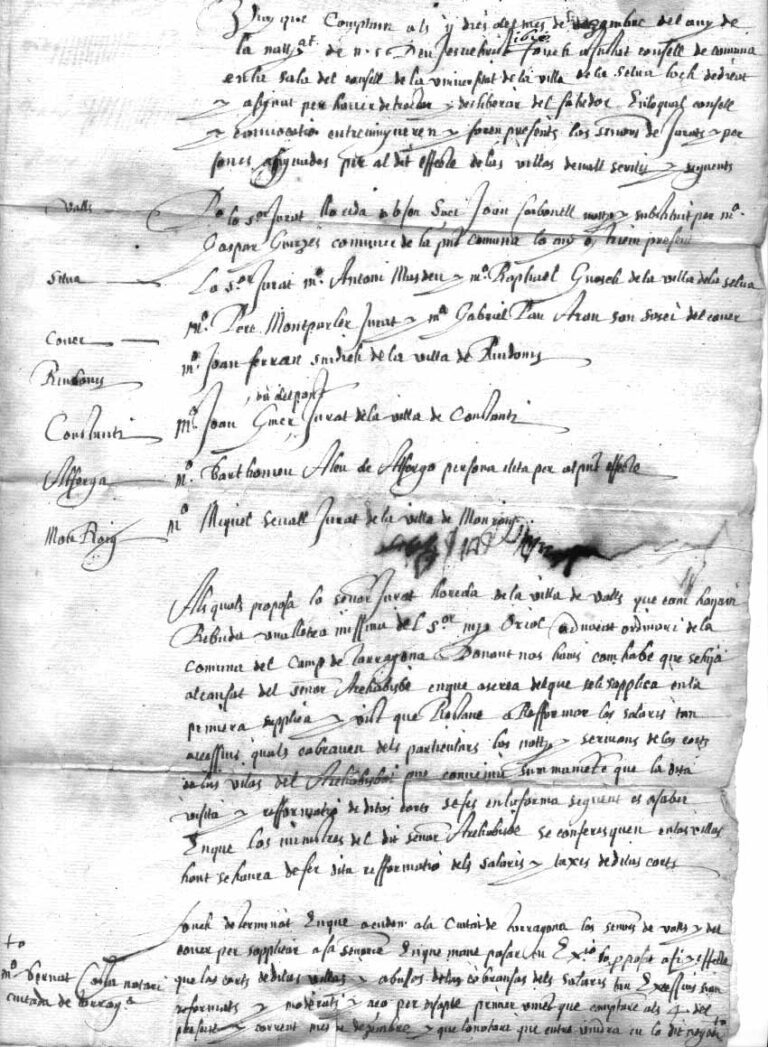 Vuy que Comptam als ÿ dies del mes de dezembre del any de
la nati.at de n. s. Deu Jesuchrist fonch ajuntat consell de comuna
en la sala del consell de la universitat de la villa de la selva loch
y asignat per haver de tractar y desliberar del fahedor En lo qual consell
y convocatio entrevingueren y foren presents los senors de Jurats y per
sones asignadas per al dit effecte de las villas devall scrites y seguents
Valls
P.º lo s.or Jurat Joan Carbonell y substituit per m.º
Gaspar de la pnt comuna lo any present
Selva
Lo s.or Jurat m.º Antoni Masdeu y m.º Raphael Guasch de la villa de la selva
Cover
M.º Pere Montparler Jurat y m.º Gabriel Pau del cover
Riudoms
m.º Joan ferran sindich de la villa de Riudoms
Constanti
M.º Joan Giner Jurat de la villa de Constanti
Alforga
M.º Barthomeu Aleu de Alforga persona eleta per al pnt effecte
Mote Roig
M.º Miquel Jurat de la villa de Monroig
Als quals proposa lo senor Jurat de la villa de valls que com hajam
Rebuda una lletra missiva del s.or Oriol advocat ordinari de la
comuna del Camp de Tarragona Donant nos havis com habe que se hija
alcansat del senor Archabisbe en que acerca del que seli supplica en la
primera supplica y vist que a Refformar los salaris tan
excessius quals cobraven dels particulars los notts y scrivans de las corts
de las vilas del Archabisbat que convenia summamete que la dita
visita y refformatio de ditas corts se fes en la forma seguent es a saber
En que los ministres del dit senor Archabisbe se conferesquen en las villas
hont se haura de fer dita refformatio dels salaris y taxes de ditas corts
fonch determinat En que acuden a la Ciutat de tarragona los senors de valls y del
cover per supplicar a sa senoria En que mane posar en Ex.io lo pposat a fi y effecte
to
m.º Bernat notari
ciutada de Tarrag.ª
que las corts de ditas villas y abusos de las cobransas dels salaris tan Excessius sian
reformats y moderats y aço per disapte primer vinent que comptarem als 4 del
present y corrent mes de dezembre y que lo notari que entrevindra en lo dit negoti